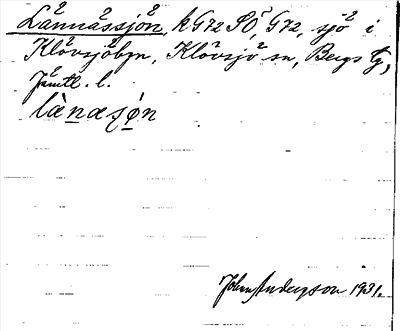 Lännässjön, k G72 SÖ, G72, sjö i
Klövsjöbyn, Klövsjö sn, Bergs tg,
Jämtl. l.
lànæsjön
John Anderson 1931.